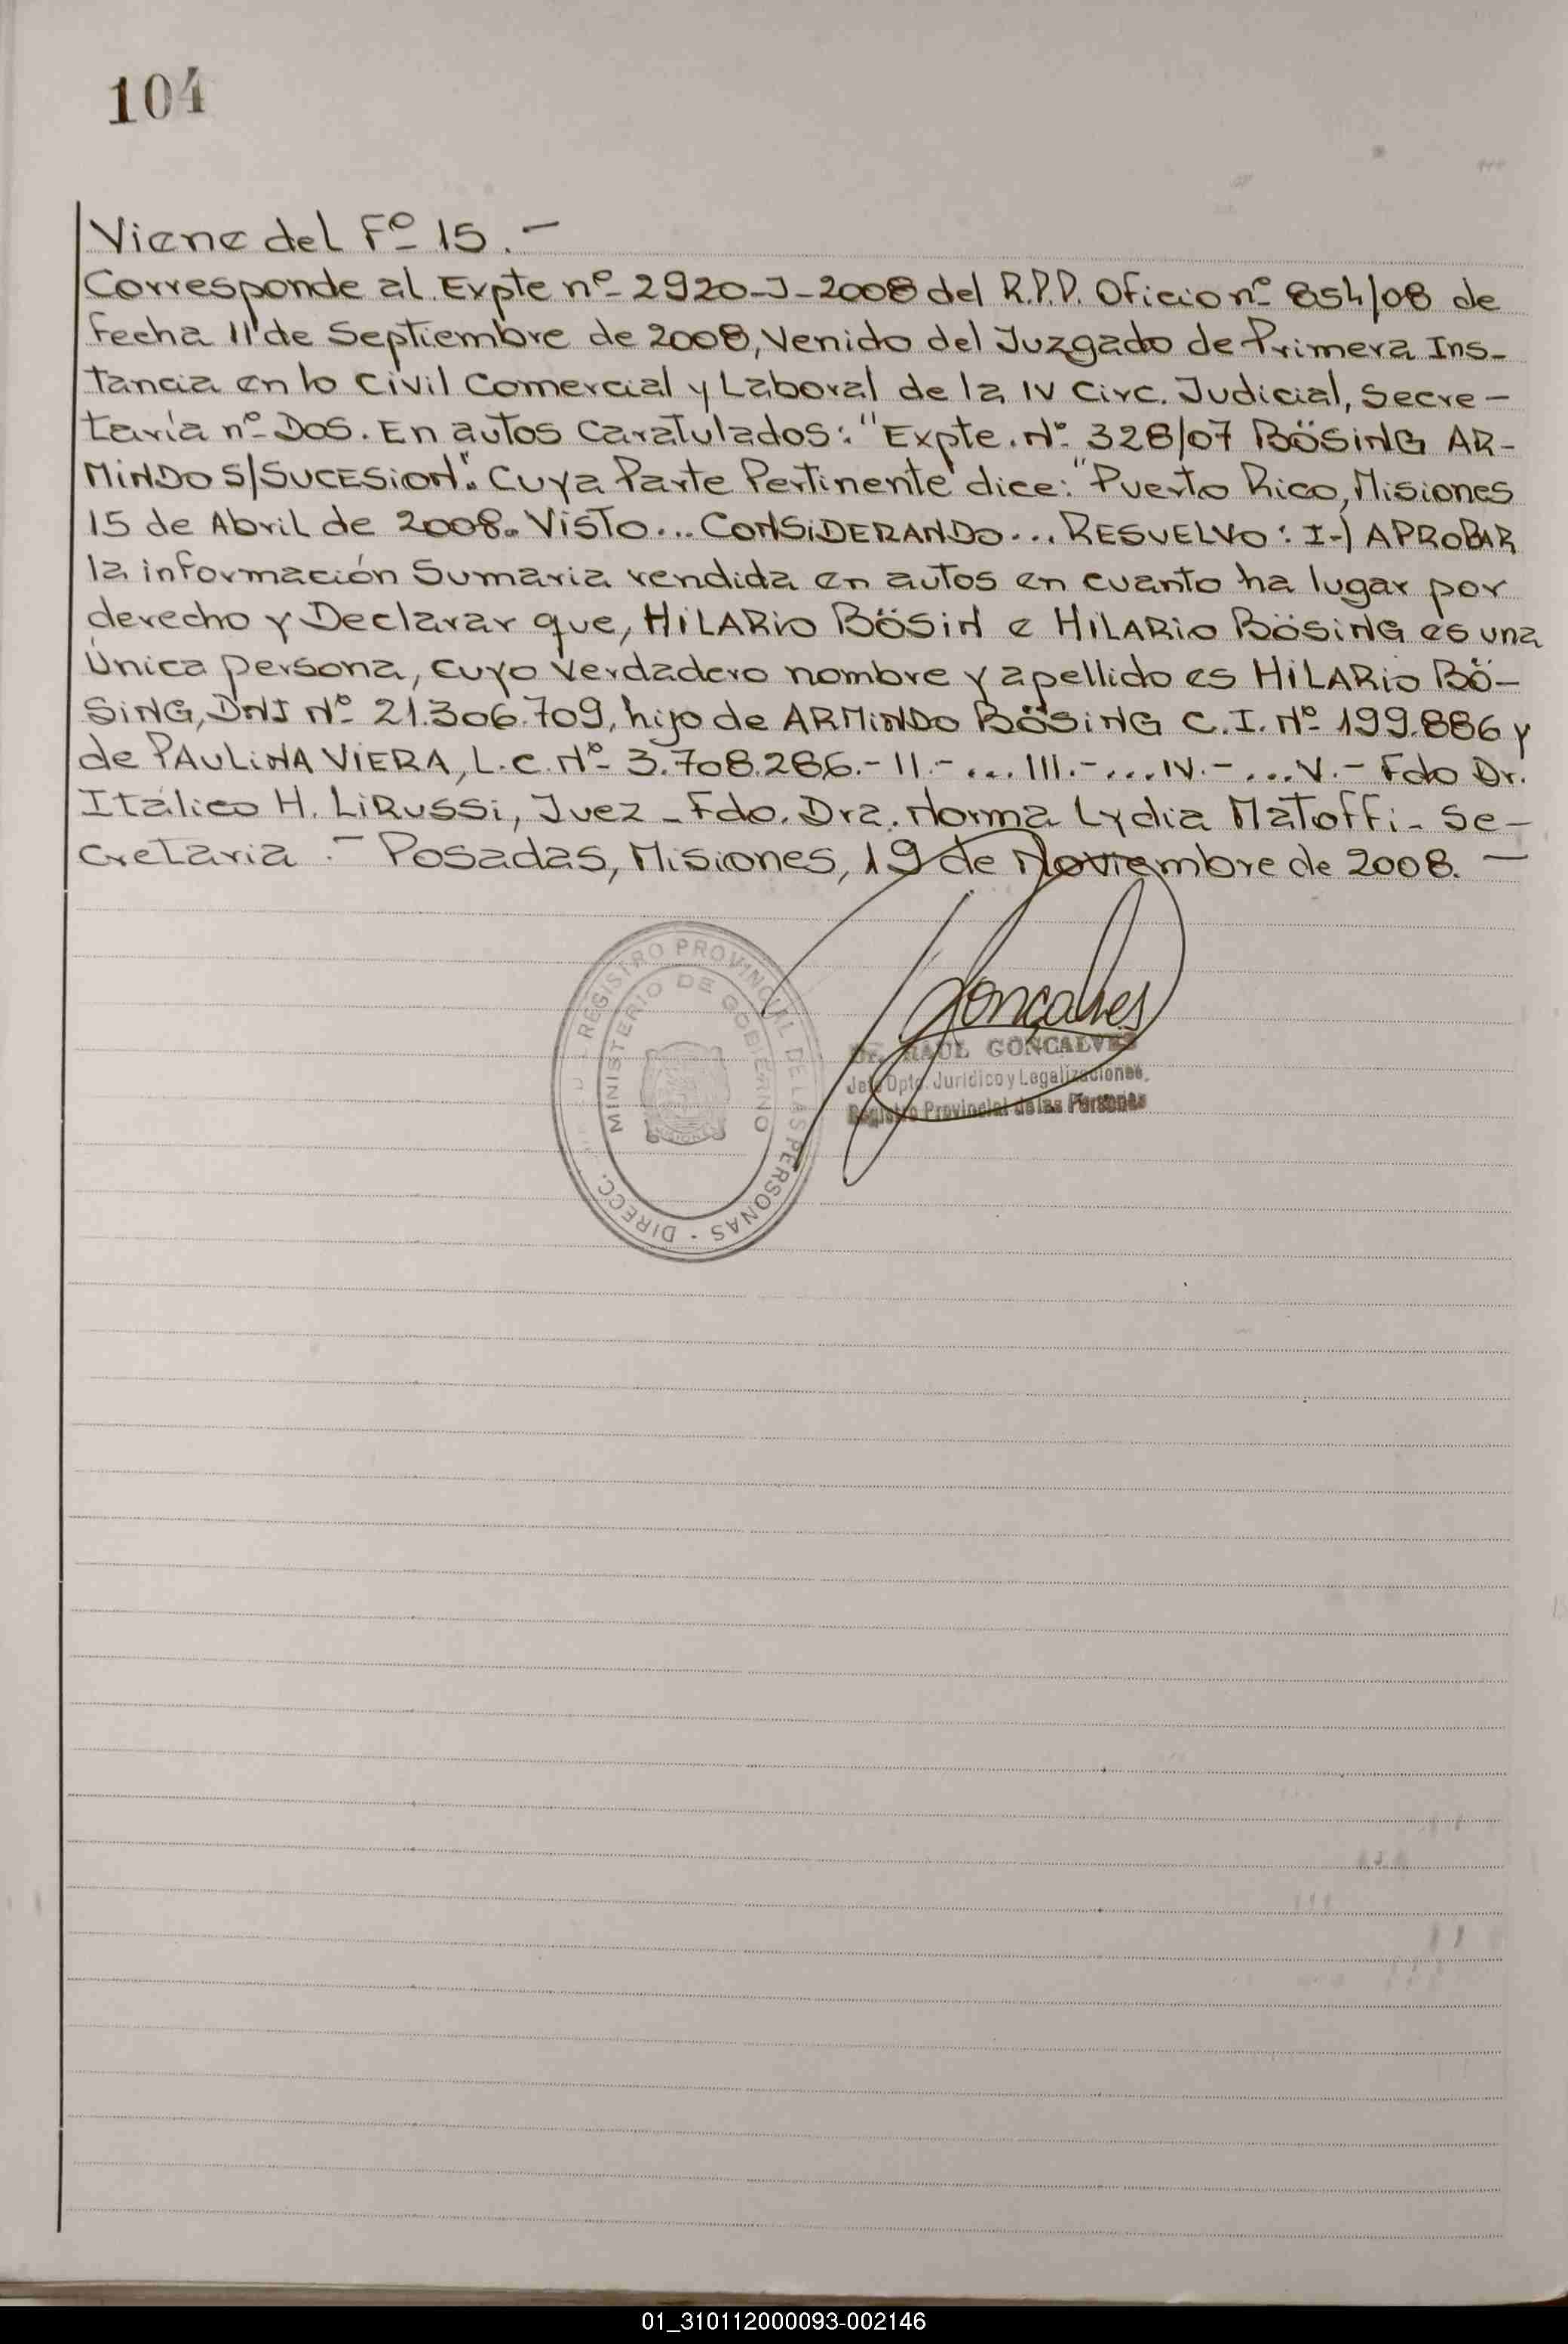 104
Viene del Fº 15.-
Corresponde al Expte nº 2920-J-2008 del R.P.P. Oficio nº 854/08 de
fecha 11 de Septiembre de 2008, Venido del Juzgado de Primera Ins-
tancia en lo Civil Comercial y Laboral de la IV Circ. Judicial, Secre-
taría nº Dos. En autos Caratulados: "Expte. Nº 328/07 BÖSING AR-
MINDO S/SUCESION". Cuya Parte Pertinente dice: "Puerto Rico, Misiones
15 de Abril de 2008. VISTO... CONSIDERANDO... RESUELVO: I-) APROBAR
la información Sumaria rendida en autos en cuanto ha lugar por
derecho y Declarar que, HILARIO BÖSIN e HILARIO BÖSING es una
Única persona, cuyo verdadero nombre y apellido es HILARIO BÖ-
SING, DNI Nº 21.306.709, hijo de ARMINDO BÖSING C.I. Nº 199.886 y
de PAULINA VIERA, L.C. Nº 3.708.286.- II.-... III.-... IV.-... V.- Fdo Dr.
Itálico H. LiRussi, Juez - Fdo. Dra. Norma Lydia Matoffi - Se-
cretaria.- Posadas, Misiones, 19 de Noviembre de 2008.-
REGISTRO PROVINCIAL DE LAS PERSONAS - DIRECC.
MINISTERIO DE GOBIERNO
MISIONES
Gonçalves
Dr. RAUL GONCALVES
Jefe Dpto. Jurídico y Legalizaciones.
Registro Provincial de las Personas
01_310112000093-002146